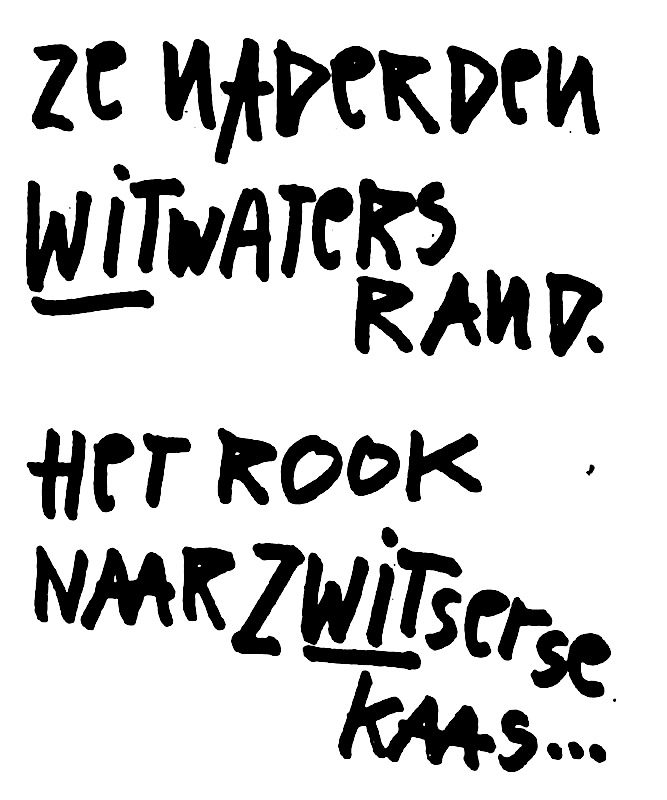 ze naderden
witwaters
rand.
het rook
naar Zwitserse
kaas...